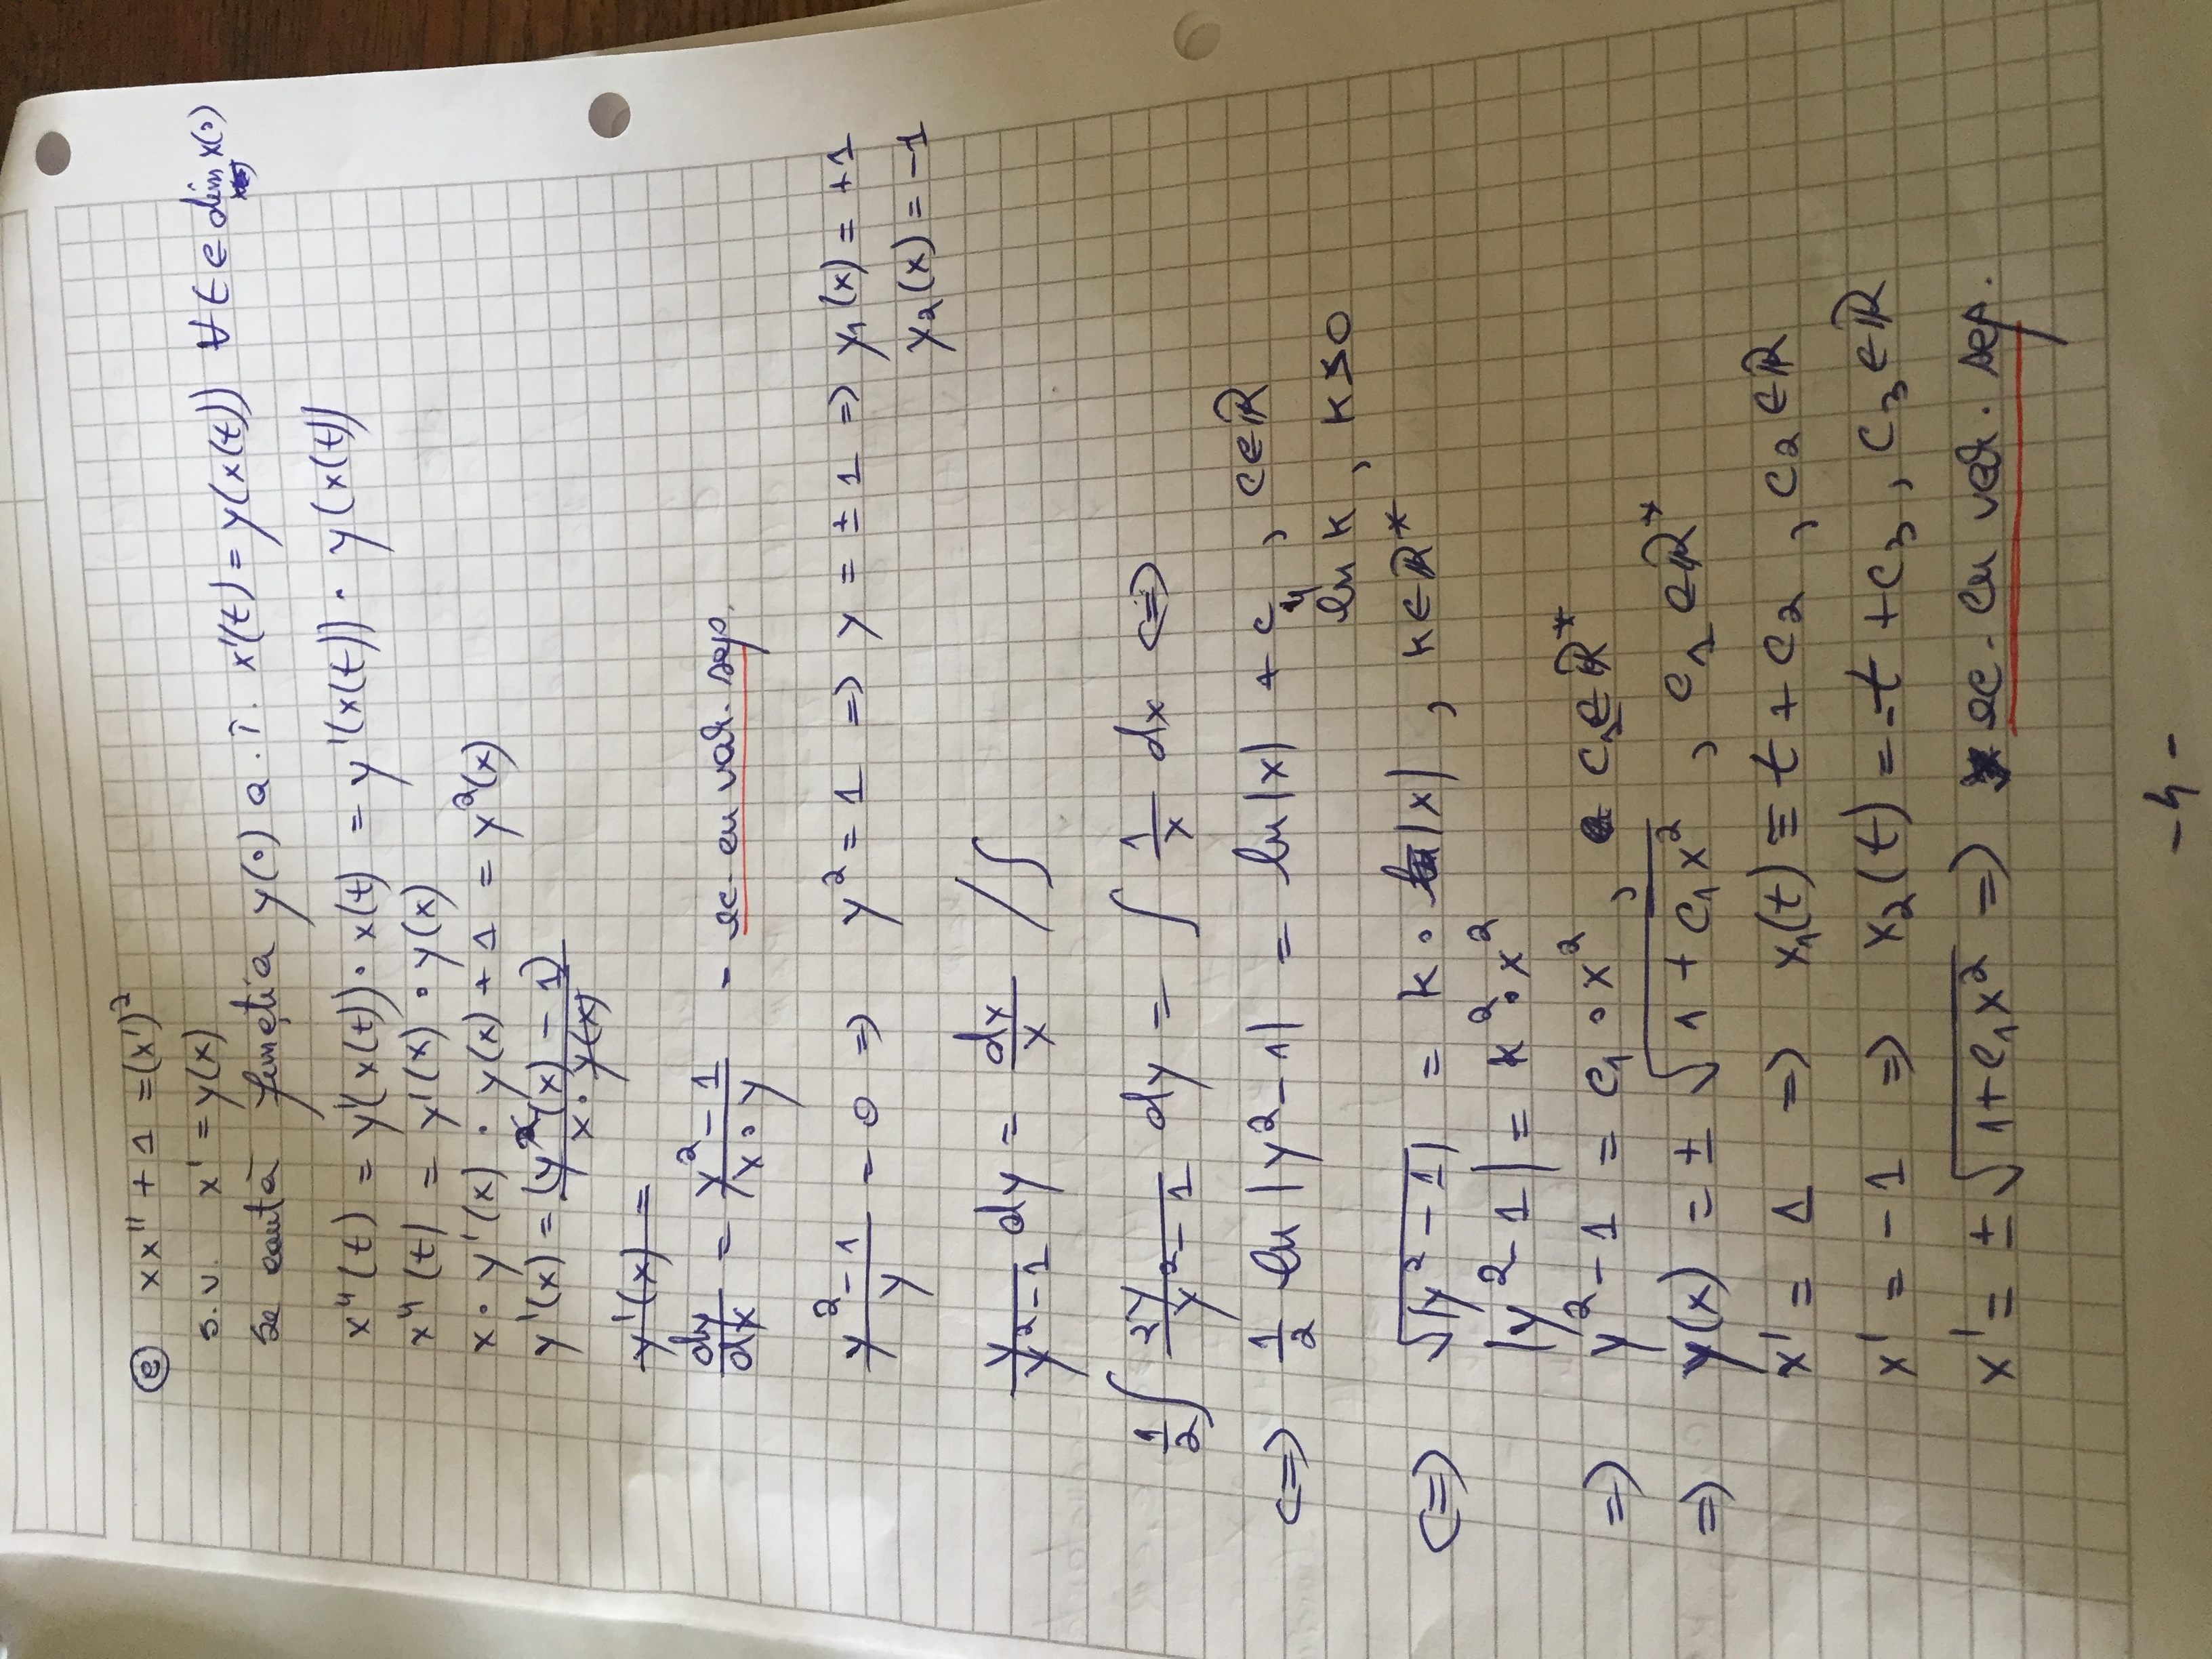 ⓔ xx'' + 1 = (x')²
s.v. x' = y(x)
Se caută funcția y(·) a.î. x'(t) = y(x(t)) ∀ t ∈ dim x(·)
x''(t) = y'(x(t)) · x(t) = y'(x(t)) · y(x(t))
x''(t) = y'(x) · y(x)
x · y'(x) · y(x) + 1 = y²(x)
y'(x) = (y²(x) - 1) / x · y(x)
y'(x) =
dy/dx = y² - 1 / x · y - ec. cu var. sep.
y² - 1 / y = 0 => y² = 1 => y = ± 1 => y₁(x) = +1
y₂(x) = -1
y / y² - 1 dy = dx / x / ∫
1/2 ∫ 2y / y² - 1 dy = ∫ 1/x dx <=>
<=> 1/2 ln |y² - 1| = ln |x| + c, c ∈ ℝ
ln k, k > 0
<=> √|y² - 1| = k · |x|, k ∈ ℝ*
|y² - 1| = k² · x²
=> y² - 1 = c₁ · x², c₁ ∈ ℝ*
=> y(x) = ± √1 + c₁x², c₁ ∈ ℝ*
x' = 1 => x₁(t) = t + c₂, c₂ ∈ ℝ
x' = -1 => x₂(t) = -t + c₃, c₃ ∈ ℝ
x' = ± √1 + c₁x² => ec. cu var. sep.
- 4 -